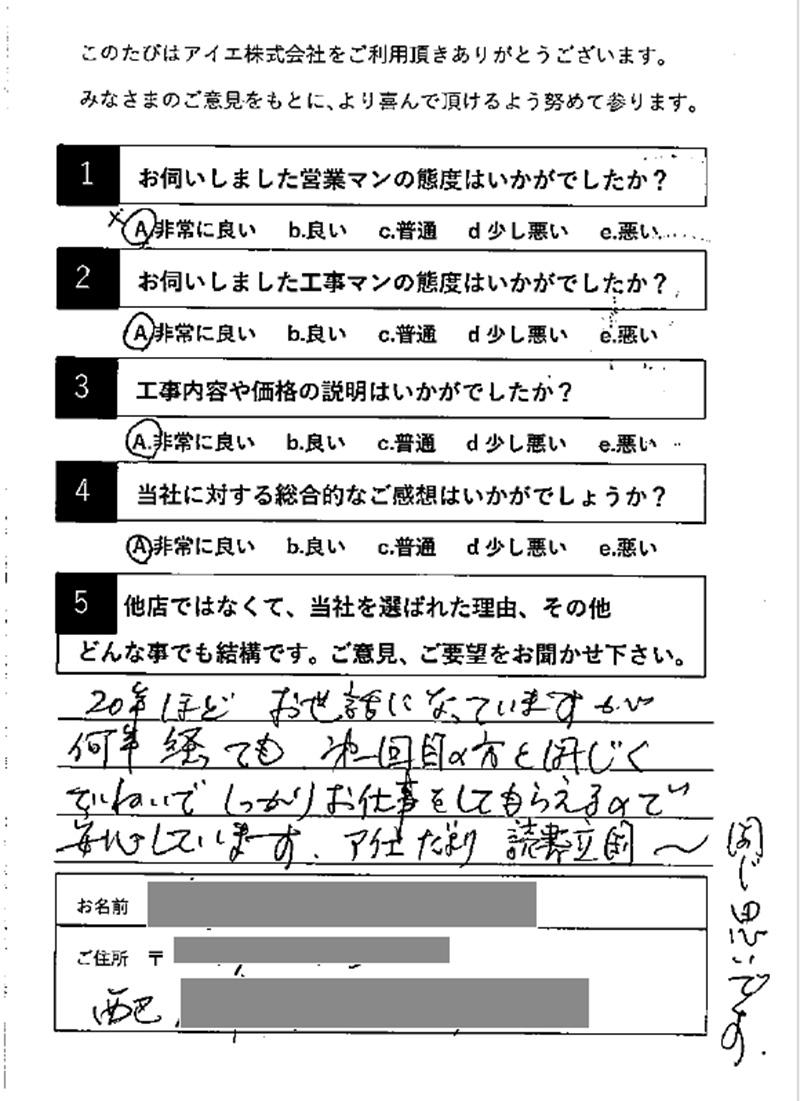 このたびはアイエ株式会社をご利用頂きありがとうございます。
みなさまのご意見をもとに、より喜んで頂けるよう努めて参ります。
1 お伺いしました営業マンの態度はいかがでしたか？
A 非常に良い b.良い c.普通 d 少し悪い e.悪い
2 お伺いしました工事マンの態度はいかがでしたか？
A 非常に良い b.良い c.普通 d 少し悪い e.悪い
3 工事内容や価格の説明はいかがでしたか？
A.非常に良い b.良い c.普通 d 少し悪い e.悪い
4 当社に対する総合的なご感想はいかがでしょうか？
A 非常に良い b.良い c.普通 d 少し悪い e.悪い
5 他店ではなくて、当社を選ばれた理由、その他
どんな事でも結構です。ご意見、ご要望をお聞かせ下さい。
20年ほど お世話になっていますが
何年経っても 第一回目の方と同じく
ていねいで しっかりお仕事をしてもらえるので
安心しています。 だより 読書
同じ思いです.
お名前
ご住所 〒
西